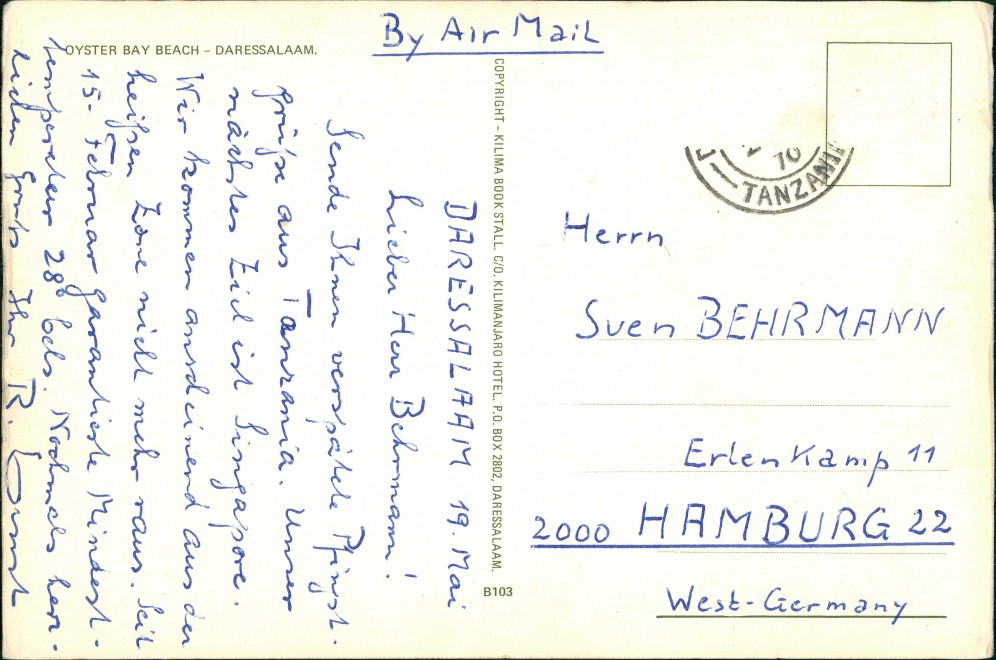 By Air Mail
OYSTER BAY BEACH – DARESSALAAM.
DARESSALAAM 19. Mai
Lieber Herr Behrmann!
Sende Ihnen verspätete Pfingst-
grüße aus Tanzania. Unser
nächstes Ziel ist Singapore.
Wir kommen anscheinend aus der
heißen Zone nicht mehr raus. Seit
15. Februar garantierte Mindest-
temperatur 28° Cels. Nochmals herz-
lichen Gruß Ihr R.
COPYRIGHT – KILIMA BOOK STALL. C/O. KILIMANJARO HOTEL. P.O. BOX 2802, DARESSALAAM.
B103
70
TANZANI
Herrn
Sven BEHRMANN
Erlenkamp 11
2000 HAMBURG 22
West-Germany